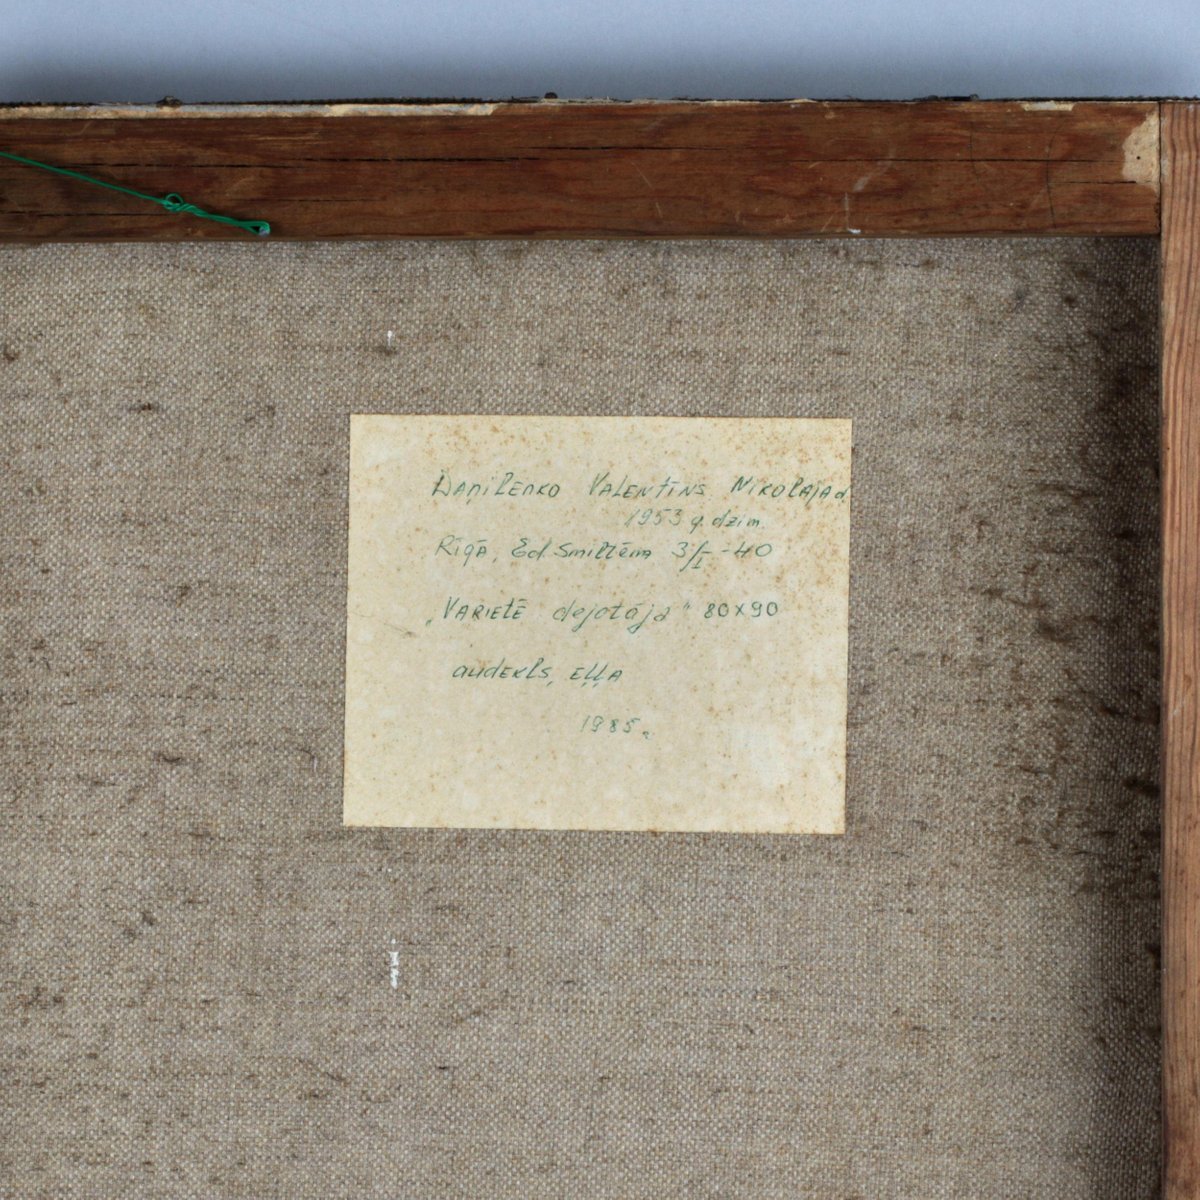 Daņilenko Valentīns Nikolaja d
1953 g. dzim.
Rīgā, Ed. Smiltēna 3/I - 40
„Varietē dejotāja" 80x90
audekls, eļļa
1985.